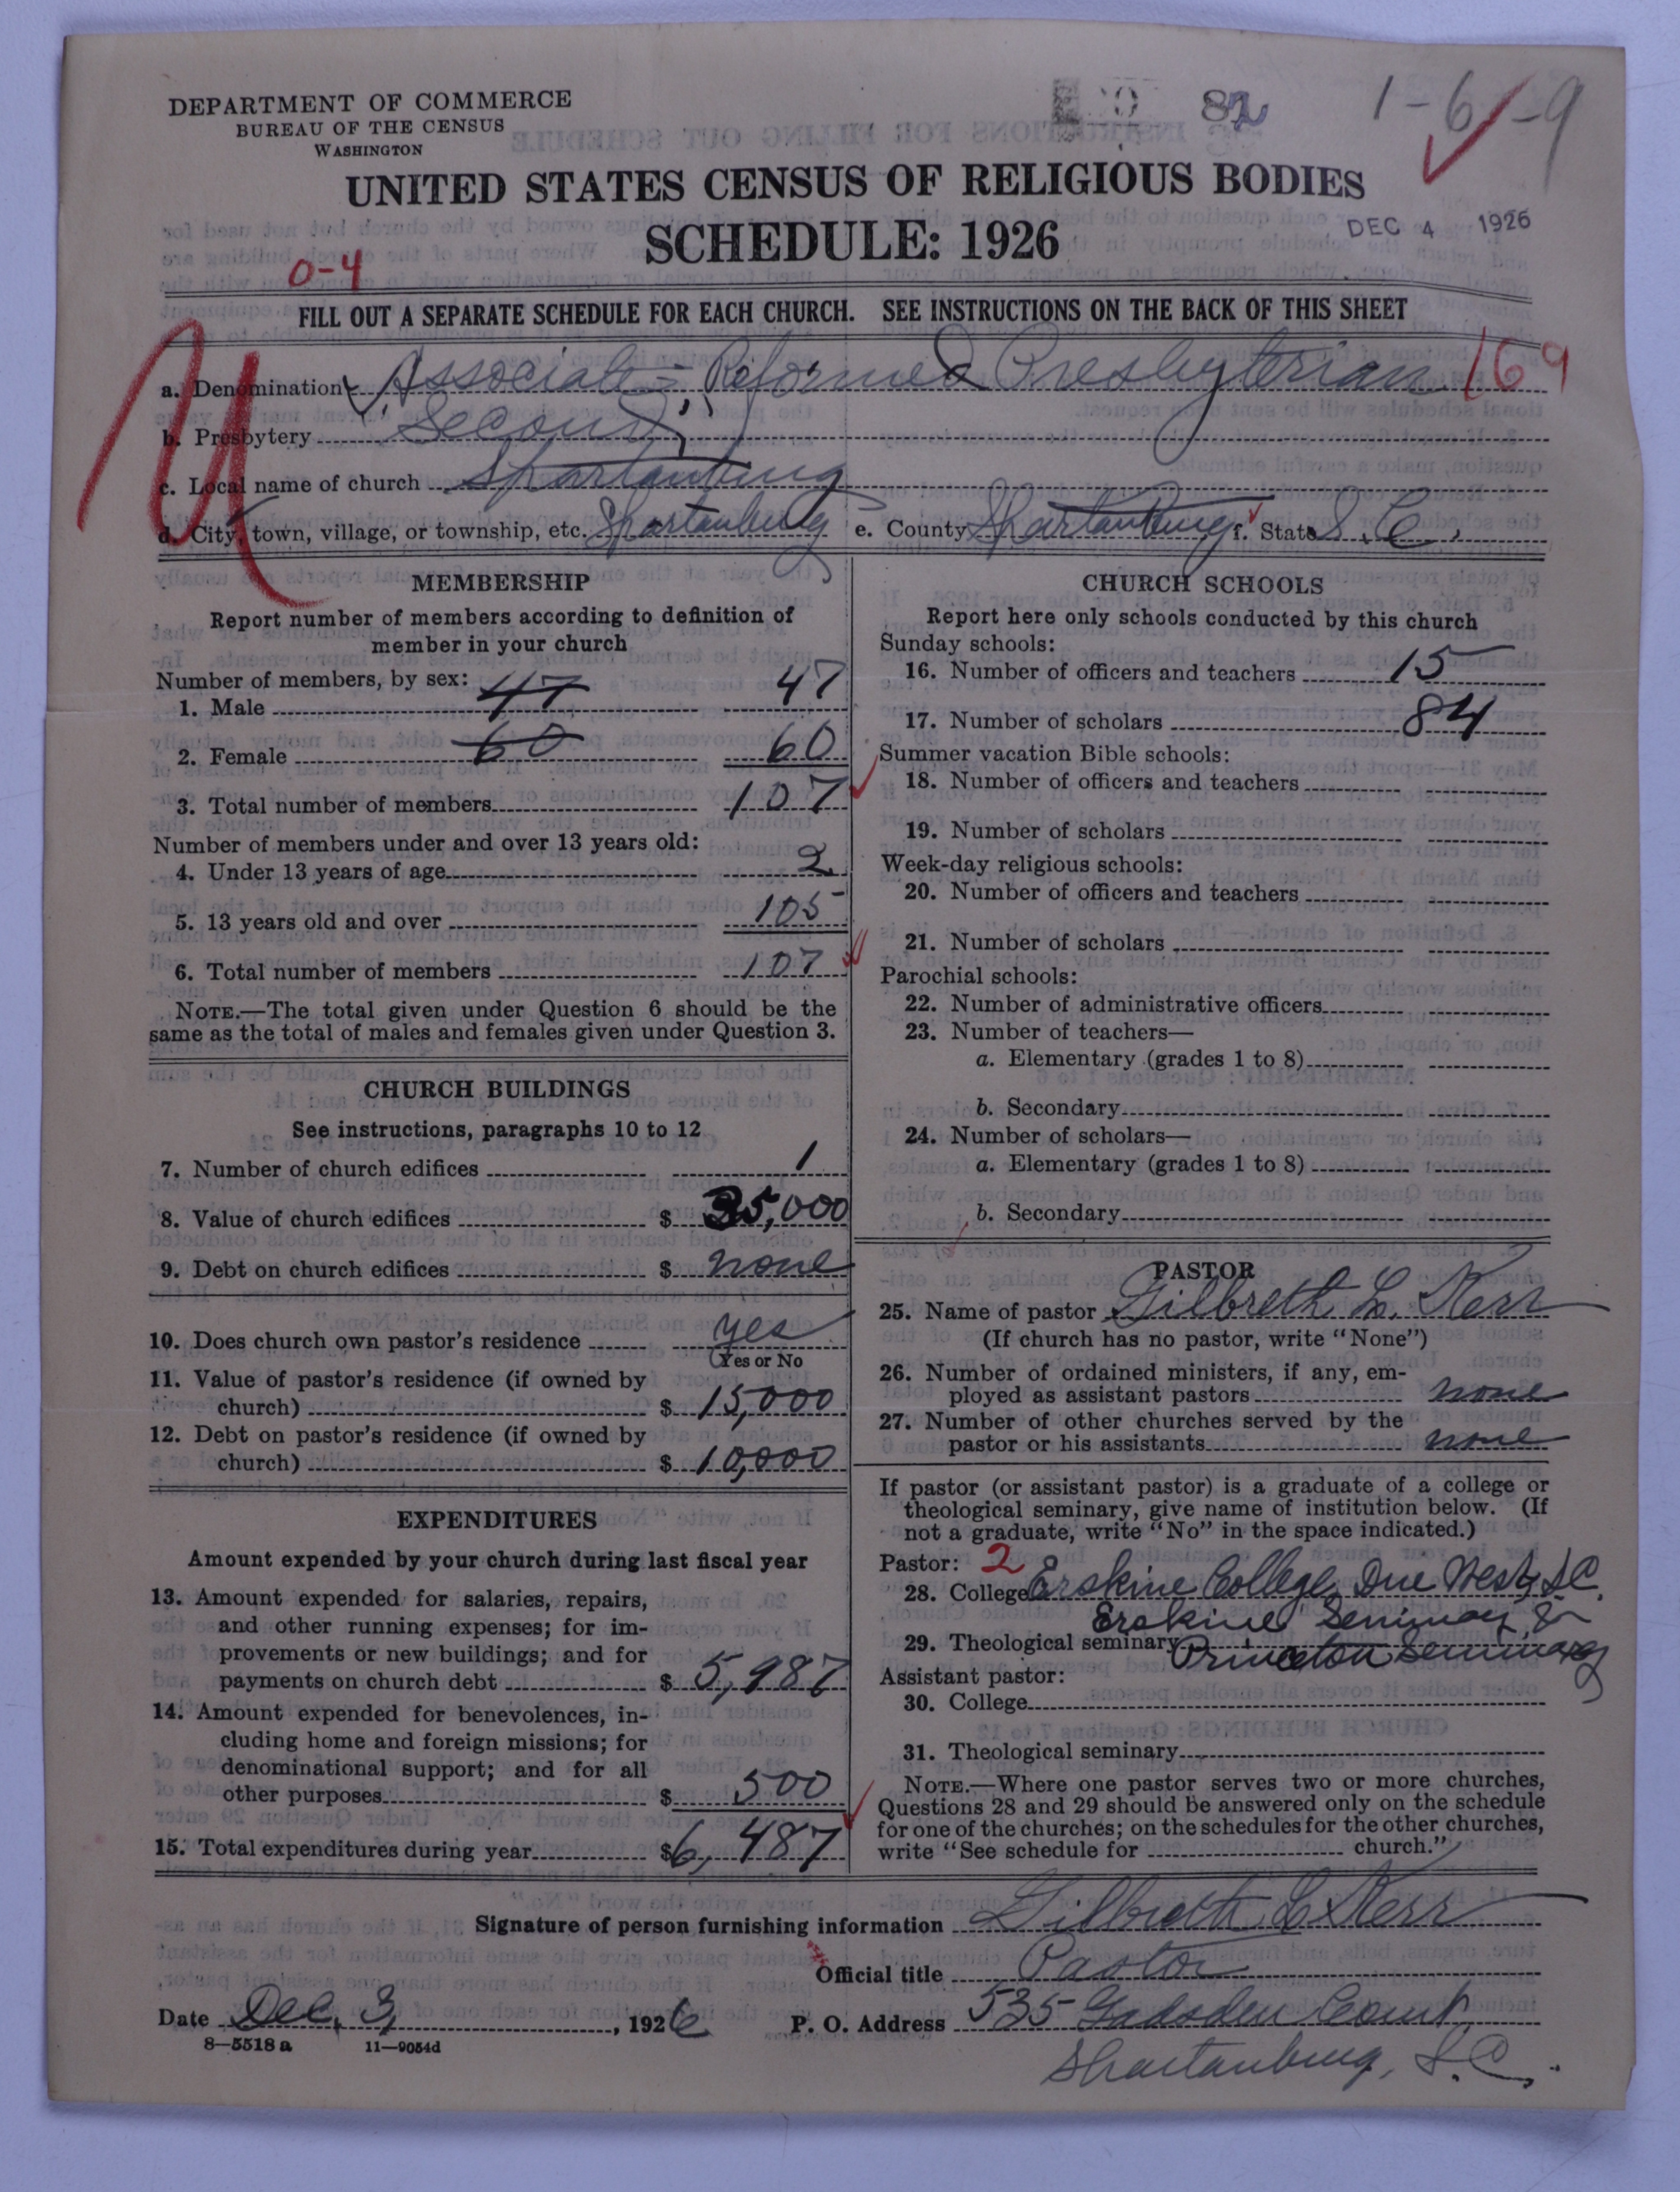 DEPARTMENT OF COMMERCE
BUREAU OF THE CENSUS
WASHINGTON
82
1-61-9
UNITED STATES CENSUS OF RELIGIOUS BODIES
SCHEDULE: 1926
DEC 4 1926
0-4
FILL OUT A SEPARATE SCHEDULE FOR EACH CHURCH. SEE INSTRUCTIONS ON THE BACK OF THIS SHEET
a. Denomination Associate-Reformed Presbyterian 169
b. Presbytery Second
c. Local name of church Spartanburg
d. City, town, village, or township, etc. Spartanburg e. County Spartanburg f. State S.C.
MEMBERSHIP
Report number of members according to definition of
member in your church
Number of members, by sex:
1. Male 47 47
2. Female 60 60
3. Total number of members 107
Number of members under and over 13 years old:
4. Under 13 years of age 2
5. 13 years old and over 105
6. Total number of members 107
NOTE.—The total given under Question 6 should be the
same as the total of males and females given under Question 3.
CHURCH BUILDINGS
See instructions, paragraphs 10 to 12
7. Number of church edifices 1
8. Value of church edifices $ 35,000
9. Debt on church edifices $ none
10. Does church own pastor's residence yes
Yes or No
11. Value of pastor's residence (if owned by
church) $ 15,000
12. Debt on pastor's residence (if owned by
church) $ 10,000
EXPENDITURES
Amount expended by your church during last fiscal year
13. Amount expended for salaries, repairs,
and other running expenses; for im-
provements or new buildings; and for
payments on church debt $ 5,987
14. Amount expended for benevolences, in-
cluding home and foreign missions; for
denominational support; and for all
other purposes $ 500
15. Total expenditures during year $ 6,487
CHURCH SCHOOLS
Report here only schools conducted by this church
Sunday schools:
16. Number of officers and teachers 15
17. Number of scholars 84
Summer vacation Bible schools:
18. Number of officers and teachers
19. Number of scholars
Week-day religious schools:
20. Number of officers and teachers
21. Number of scholars
Parochial schools:
22. Number of administrative officers
23. Number of teachers—
a. Elementary (grades 1 to 8)
b. Secondary
24. Number of scholars—
a. Elementary (grades 1 to 8)
b. Secondary
PASTOR
25. Name of pastor Gilbreth L. Kerr
(If church has no pastor, write "None")
26. Number of ordained ministers, if any, em-
ployed as assistant pastors none
27. Number of other churches served by the
pastor or his assistants none
If pastor (or assistant pastor) is a graduate of a college or
theological seminary, give name of institution below. (If
not a graduate, write "No" in the space indicated.)
Pastor: 2
28. College Erskine College, Due West, S.C.
Erskine Seminary &
29. Theological seminary Princeton Seminary
Assistant pastor:
30. College
31. Theological seminary
NOTE.—Where one pastor serves two or more churches,
Questions 28 and 29 should be answered only on the schedule
for one of the churches; on the schedules for the other churches,
write "See schedule for church."
Signature of person furnishing information Gilbreth L. Kerr
Official title Pastor
Date Dec. 3, 1926 P. O. Address 535 Gadsden Court
8—5518 a 11—9054d
Spartanburg, S.C.